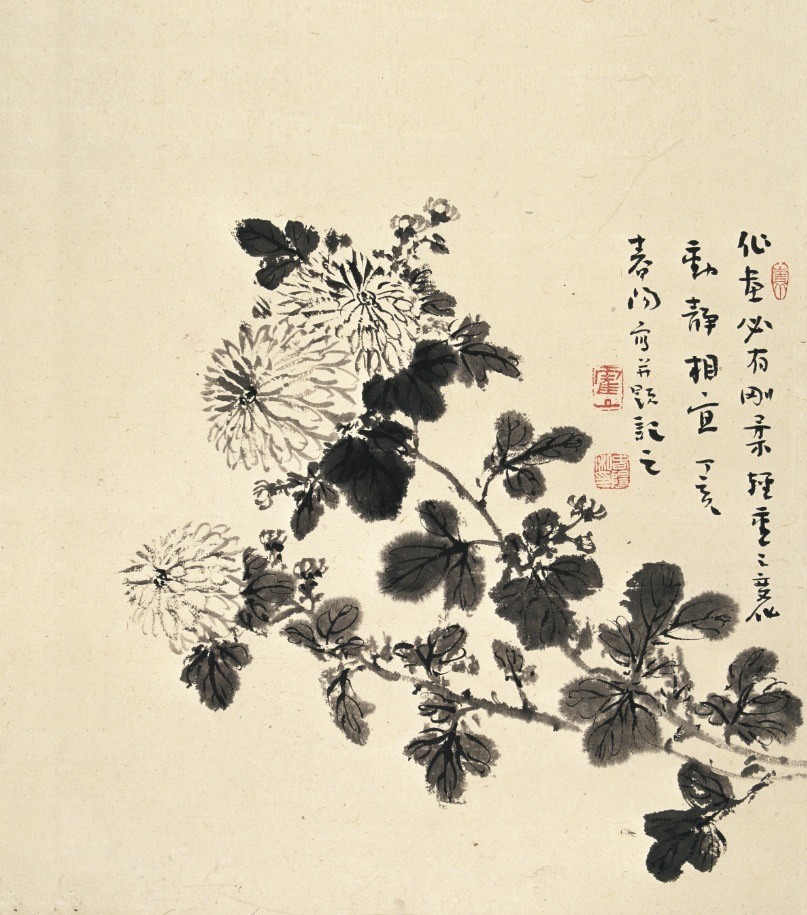 作畫必有剛柔輕重之變化
動靜相宜 丁亥
春阳寫并題記之
霍